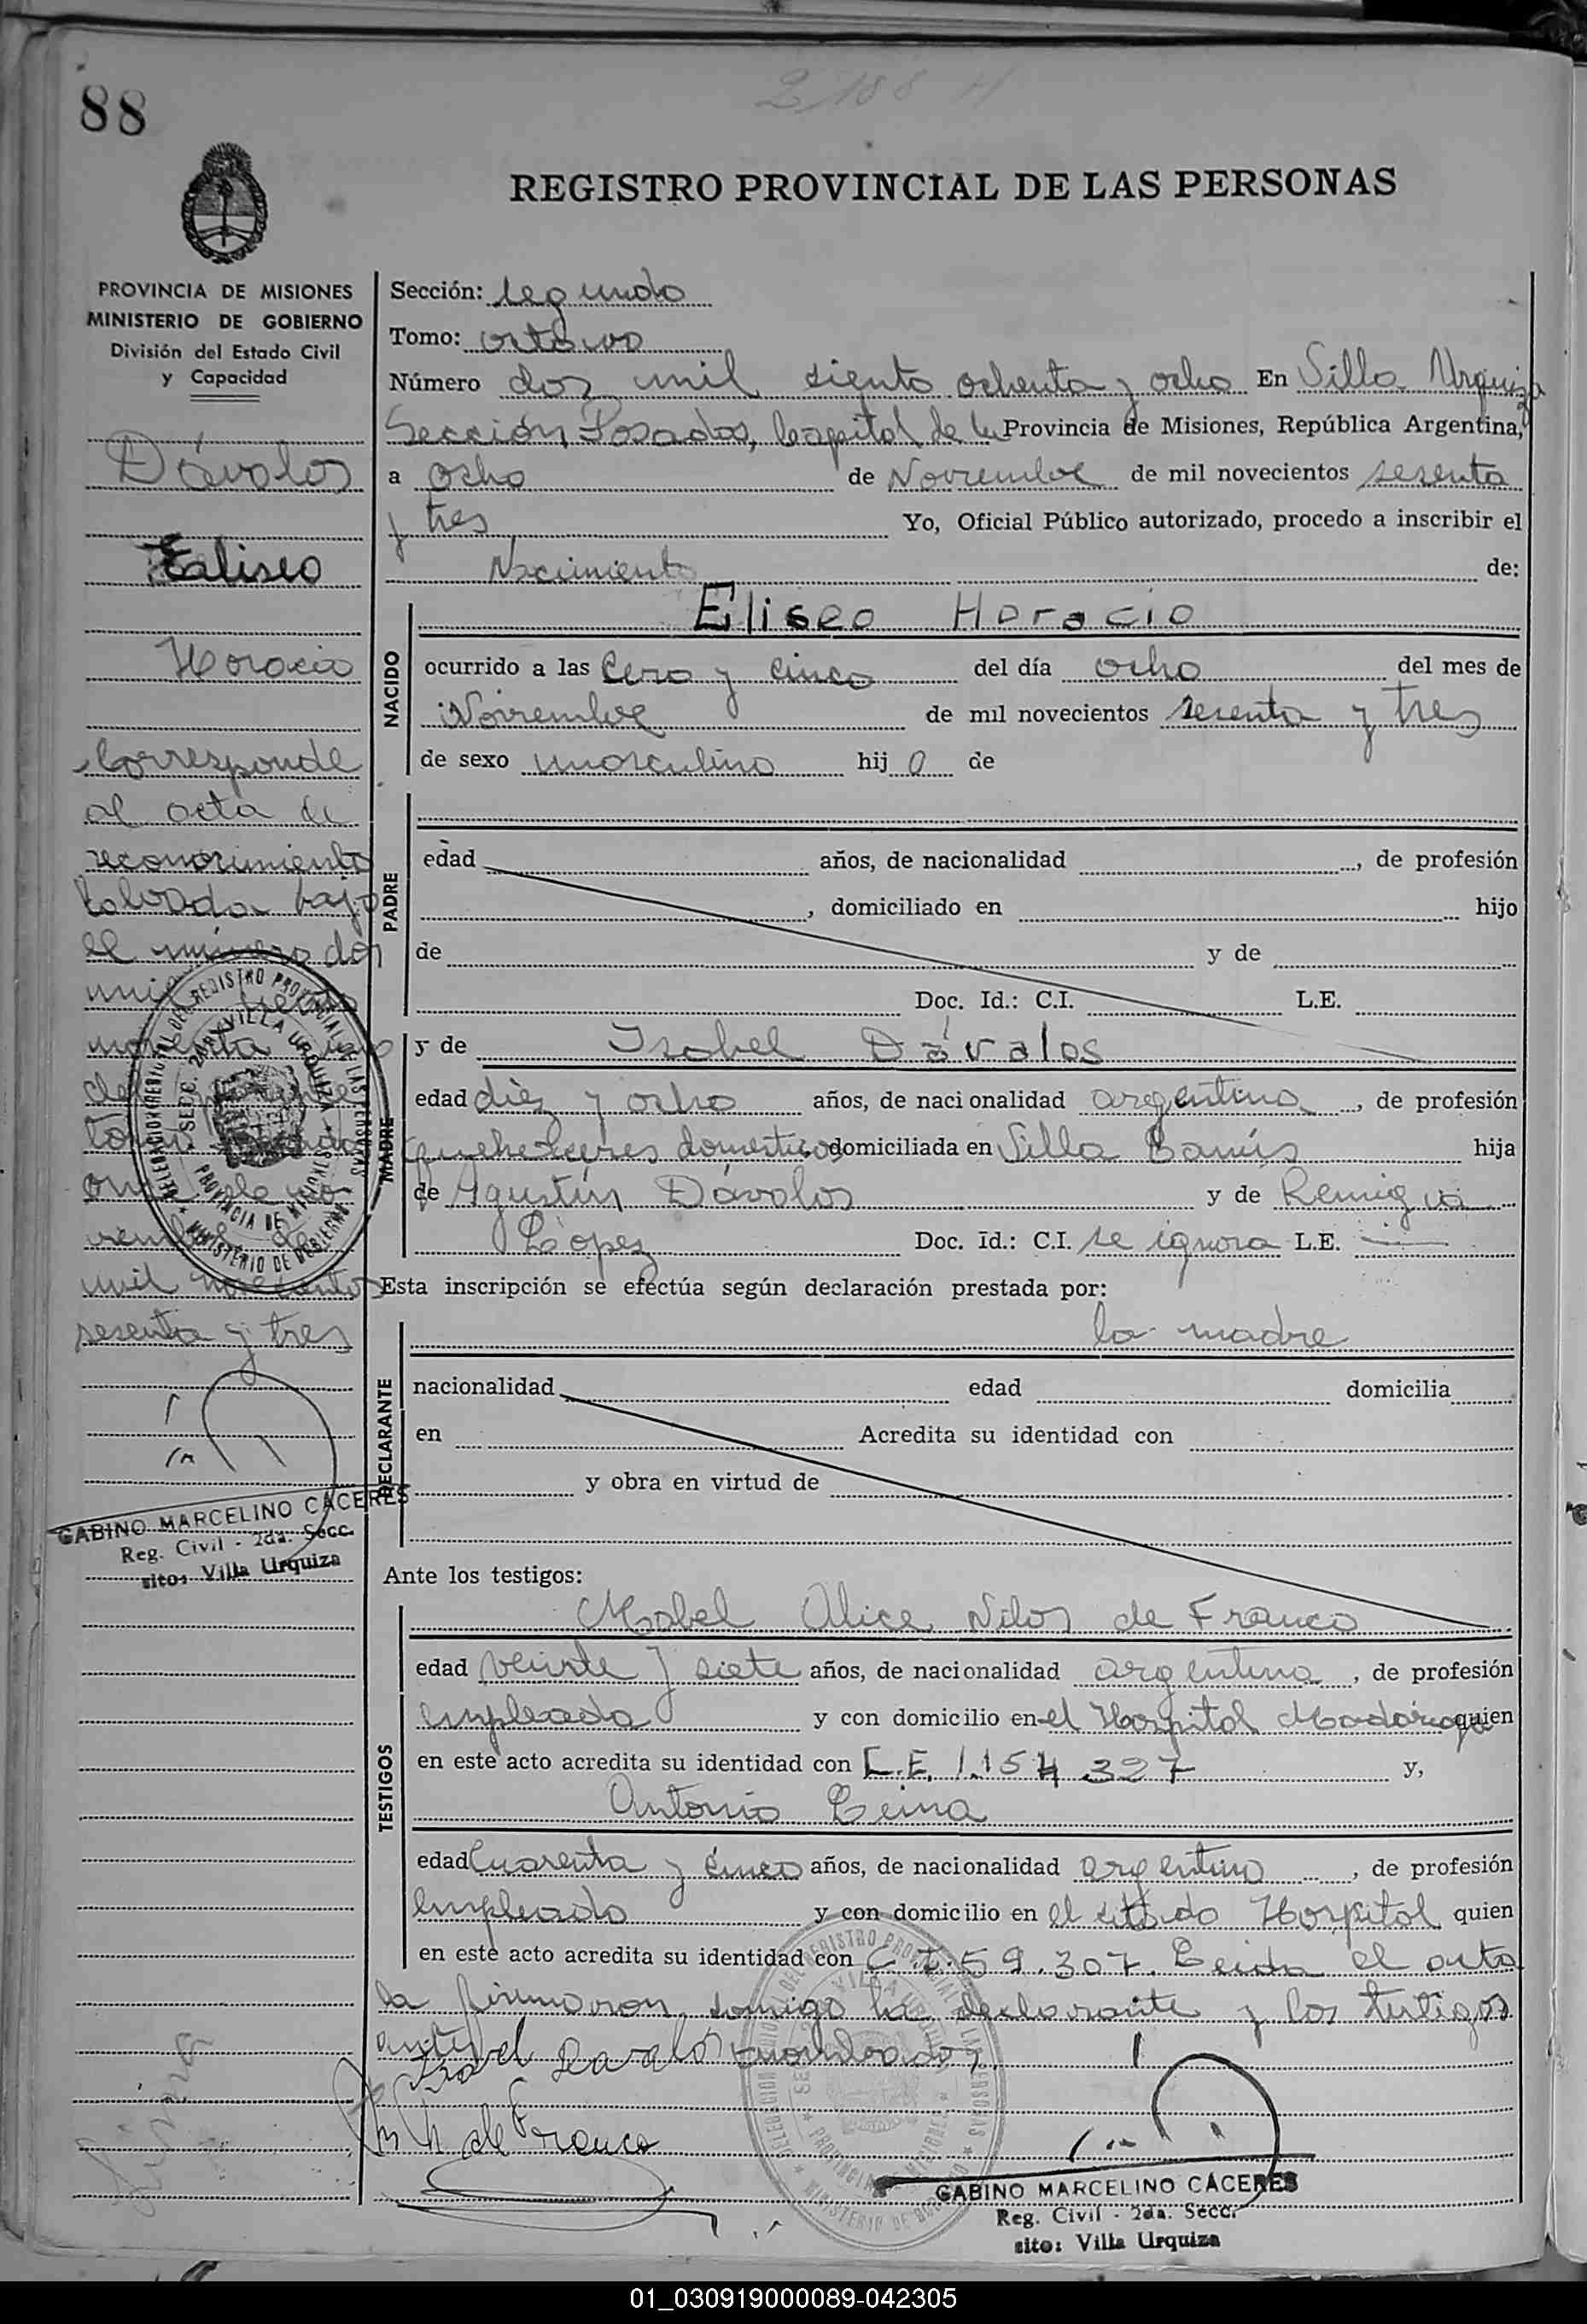 2188 H
88
REGISTRO PROVINCIAL DE LAS PERSONAS
PROVINCIA DE MISIONES
MINISTERIO DE GOBIERNO
División del Estado Civil
y Capacidad
Dávalos
Eliseo
Horacio
Corresponde
al acta de
reconocimiento
labrada bajo
el número dos
mil
noventa
del
tomo
once de no
viembre de
mil novecientos
sesenta y tres
GABINO MARCELINO CÁCERES
Reg. Civil - 2da. Secc.
sito: Villa Urquiza
Sección: segunda
Tomo: octavo
Número dos mil ciento ochenta y ocho En Villa Urquiza
Sección Posadas, Capital de la Provincia de Misiones, República Argentina,
a ocho de Noviembre de mil novecientos sesenta
y tres Yo, Oficial Público autorizado, procedo a inscribir el
Nacimiento de:
NACIDO
Eliseo Horacio
ocurrido a las Cero y cinco del día ocho del mes de
Noviembre de mil novecientos sesenta y tres
de sexo masculino hij o de
PADRE
edad años, de nacionalidad , de profesión
, domiciliado en hijo
de y de
Doc. Id.: C.I. L.E.
MADRE
y de Isabel Dávalos
edad diez y ocho años, de nacionalidad argentina, de profesión
quehaceres domesticos domiciliada en Villa Lanús hija
de Agustín Dávalos y de Remigia
López Doc. Id.: C.I. se ignora L.E.
Esta inscripción se efectúa según declaración prestada por:
DECLARANTE
la madre
nacionalidad edad domicilia
en Acredita su identidad con
y obra en virtud de
Ante los testigos:
TESTIGOS
Mabel Alice de Franco
edad veinte y siete años, de nacionalidad argentina, de profesión
empleada y con domicilio en el Hospital Madariaga quien
en este acto acredita su identidad con L.E. 1.154.327 y,
Antonio Leiva
edad Cuarenta y cinco años, de nacionalidad argentino, de profesión
empleado y con domicilio en el citado Hospital quien
en este acto acredita su identidad con C.I. 59.307. Leída el acta
la firmaron conmigo la declarante y los testigos
Isabel Davalos
de Franco
GABINO MARCELINO CÁCERES
Reg. Civil - 2da. Secc.
sito: Villa Urquiza
DELEGACION DEL REGISTRO PROVINCIAL DE LAS PERSONAS
SECC. 2da. VILLA URQUIZA
PROVINCIA DE MISIONES
MINISTERIO DE GOBIERNO
01_030919000089-042305